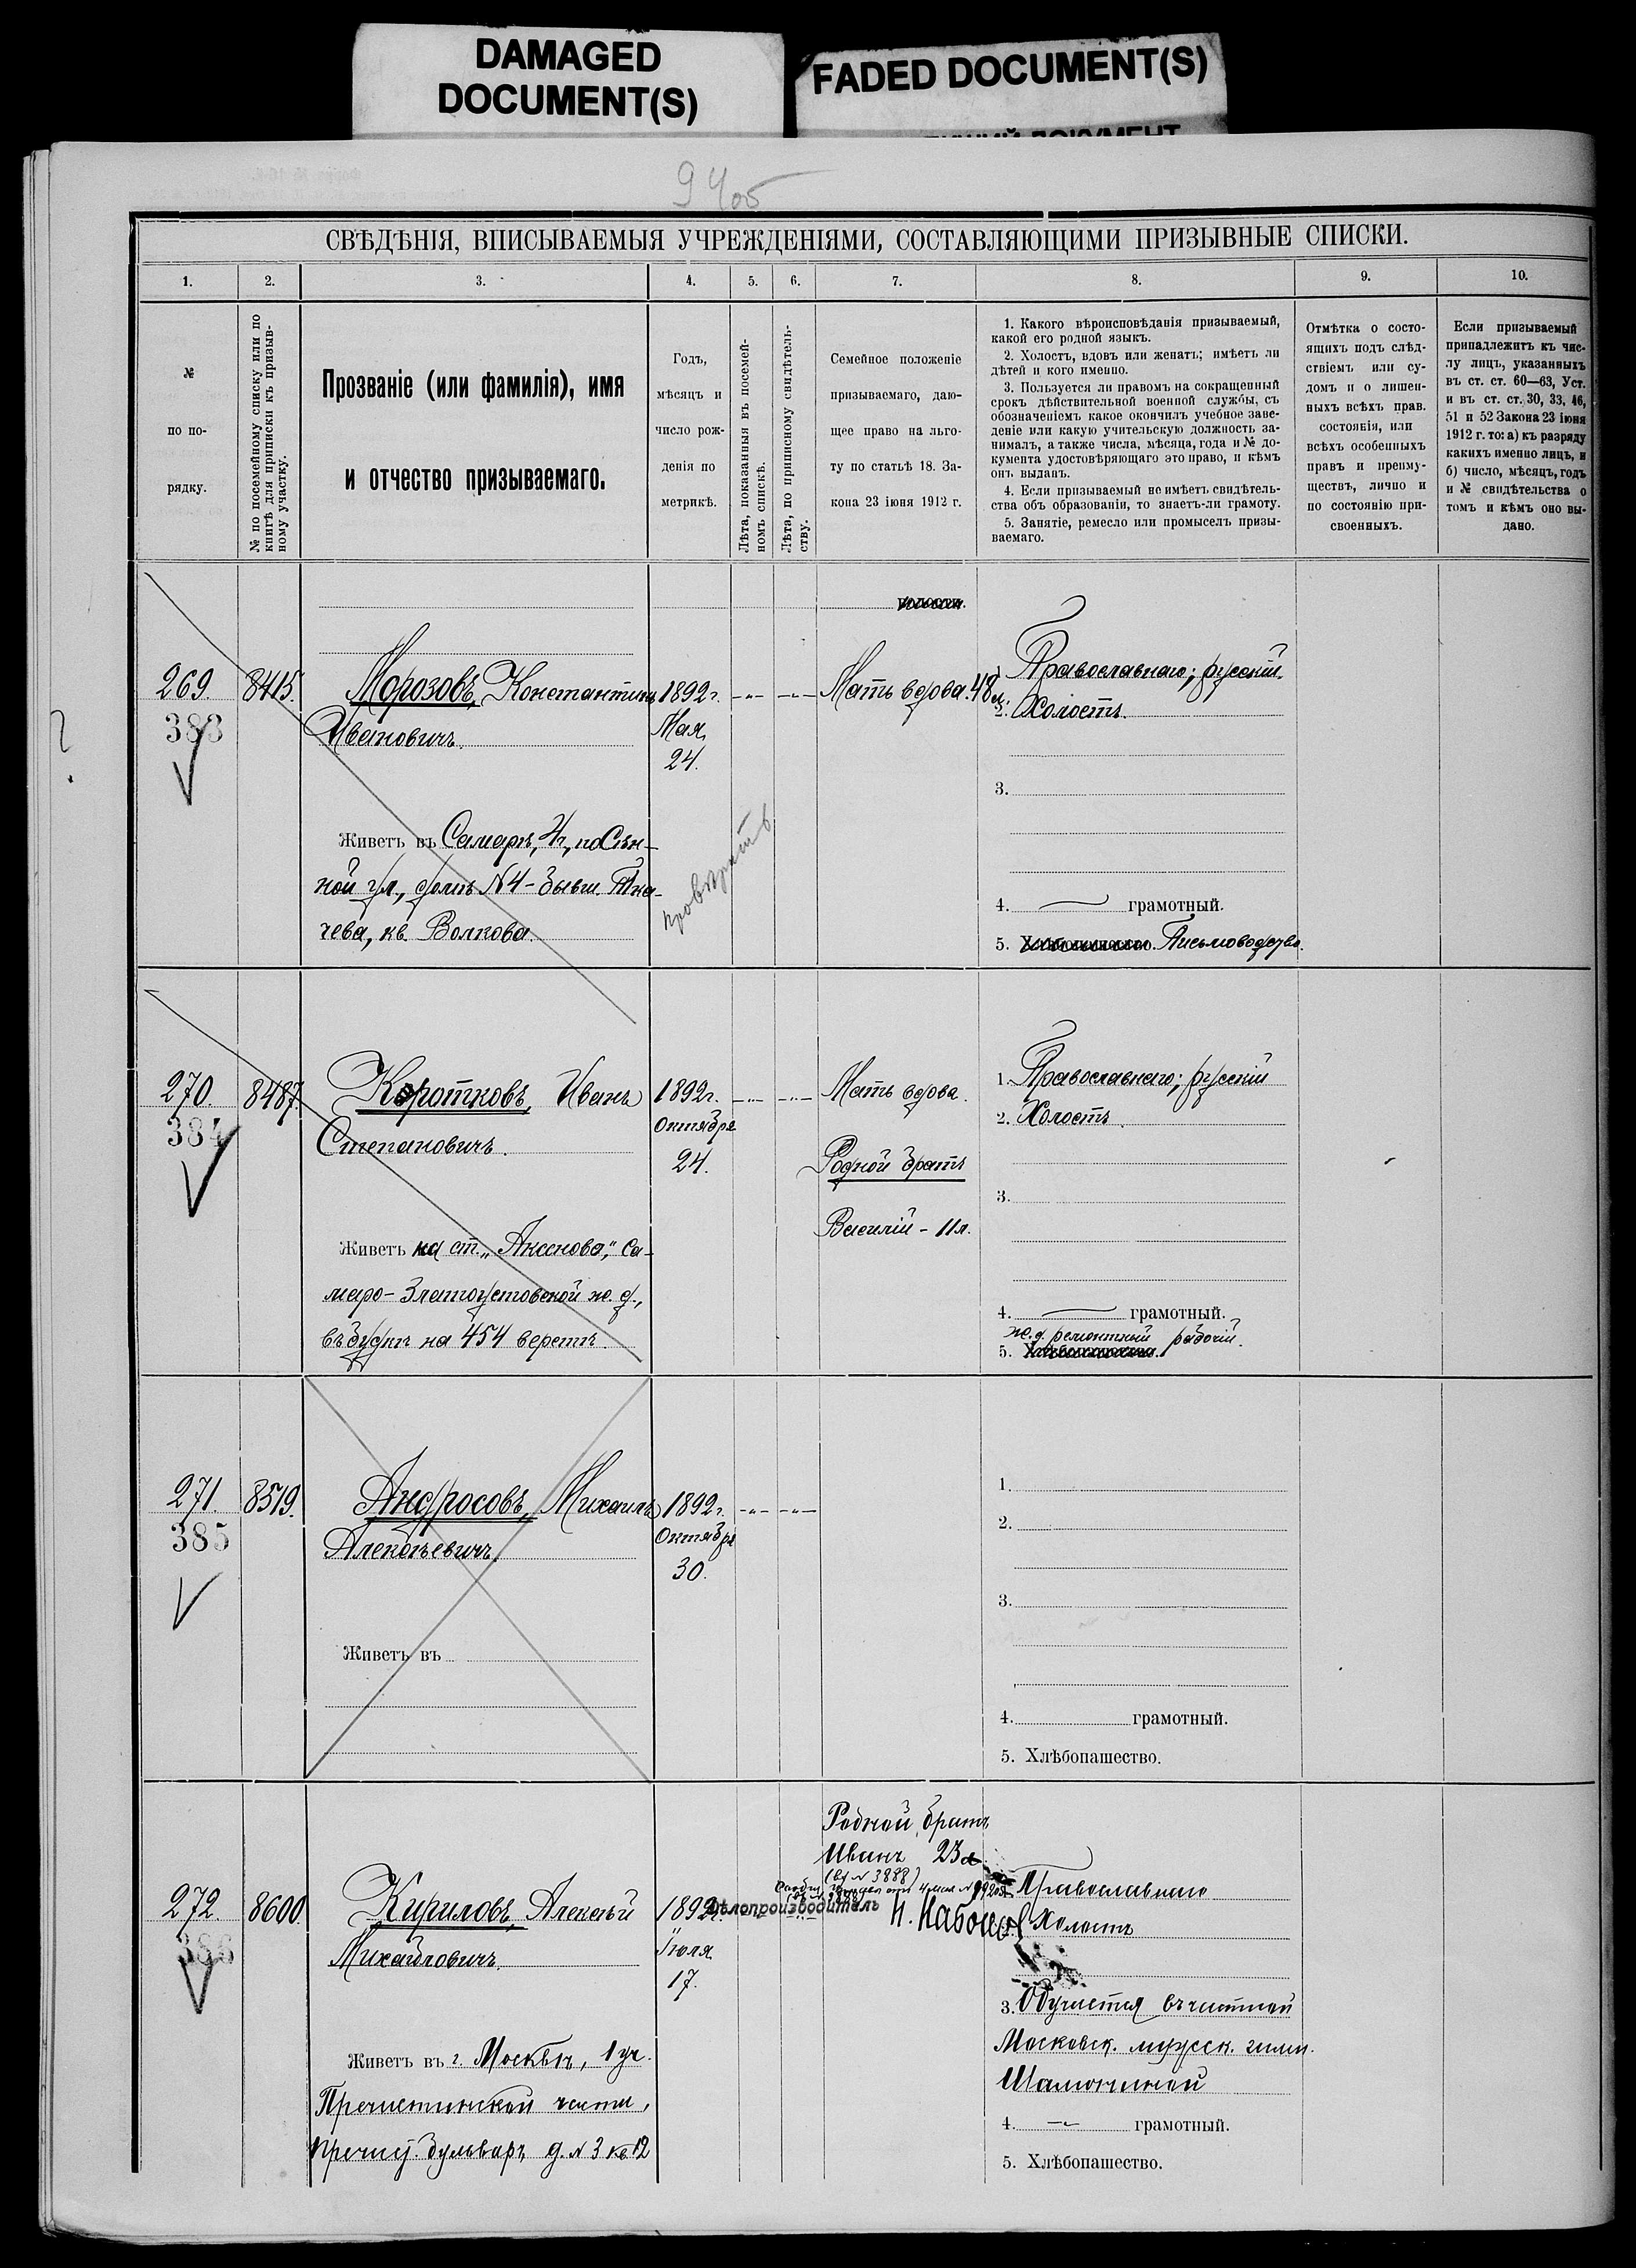 DAMAGED
DOCUMENT(S)
FADED DOCUMENT(S)
94об
СВѢДѢНІЯ, ВПИСЫВАЕМЫЯ УЧРЕЖДЕНІЯМИ, СОСТАВЛЯЮЩИМИ ПРИЗЫВНЫЕ СПИСКИ.
1. 2. 3. 4. 5. 6. 7. 8. 9. 10.
№
по по-
рядку.
№ по посемейному списку или по
книгѣ для приписки къ призыв-
ному участку.
Прозваніе (или фамилія), имя
и отчество призываемаго.
Годъ,
мѣсяцъ и
число рож-
денія по
метрикѣ.
Лѣта, показанныя въ посемей-
номъ спискѣ.
Лѣта, по приписному свидѣтель-
ству.
Семейное положеніе
призываемаго, даю-
щее право на льго-
ту по статьѣ 18. За-
кона 23 іюня 1912 г.
1. Какого вѣроисповѣданія призываемый,
какой его родной языкъ.
2. Холостъ, вдовъ или женатъ; имѣетъ ли
дѣтей и кого именно.
3. Пользуется ли правомъ на сокращенный
срокъ дѣйствительной военной службы, съ
обозначеніемъ какое окончилъ учебное заве-
деніе или какую учительскую должность за-
нималъ, а также числа, мѣсяца, года и № до-
кумента удостовѣряющаго это право, и кѣмъ
онъ выданъ.
4. Если призываемый не имѣетъ свидѣтель-
ства объ образованіи, то знаетъ-ли грамоту.
5. Занятіе, ремесло или промыселъ призы-
ваемаго.
Отмѣтка о состо-
ящихъ подъ слѣд-
ствіемъ или су-
домъ и о лишен-
ныхъ всѣхъ прав.
состоянія, или
всѣхъ особенныхъ
правъ и преиму-
ществъ, лично и
по состоянію при-
своенныхъ.
Если призываемый
принадлежитъ къ чис-
лу лицъ, указанныхъ
въ ст. ст. 60—63, Уст.
и въ ст. ст. 30, 33, 46,
51 и 52 Закона 23 іюня
1912 г. то: а) къ разряду
какихъ именно лицъ, и
б) число, мѣсяцъ, годъ
и № свидѣтельства о
томъ и кѣмъ оно вы-
дано.
волости.
269. 8415. Морозовъ, Константинъ 1892 г. Мать вдова. 48 л.
383
Ивановичъ.
Мая
24.
Живетъ въ Самарѣ, 4 ч., по Сѣн-
ной ул., домъ № 4 - бывш. Тка-
чева, кв. Волкова.
провѣрить
1. Православнаго; русскій.
2. Холостъ.
3.
4. грамотный.
5. Хлѣбопашество. Письмоводство.
270. 8487. Коротковъ, Иванъ 1892 г. Мать вдова.
384
Степановичъ.
Октября
24.
Родной братъ
Василій - 11 л.
Живетъ на ст. „Аксеново“, Са-
маро-Златоустовской ж. д.,
въ будкѣ на 454 верстѣ.
1. Православнаго; русскій
2. Холостъ.
3.
4. грамотный.
ж. д. ремонтный рабочій.
5. Хлѣбопашество.
271. 8519. Андросовъ, Михаилъ 1892 г.
385
Алексѣевичъ.
Октября
30.
Живетъ въ
1.
2.
3.
4. грамотный.
5. Хлѣбопашество.
Родной братъ
Иванъ 23 л
(вх № 3888)
272. 8600. Кириловъ, Алексѣй 1892 г.
386
Михайловичъ.
Іюля
17.
Дѣлопроизводитель Н. Набоковъ
Живетъ въ г. Москвѣ, 1 уч.
Пречистинской части,
Пречис. бульваръ, д. № 3 кв 12
Православнаго
Холостъ
3. Обучается въ частной
Московск. мужск. гимн.
Шамониной
4. грамотный.
5. Хлѣбопашество.